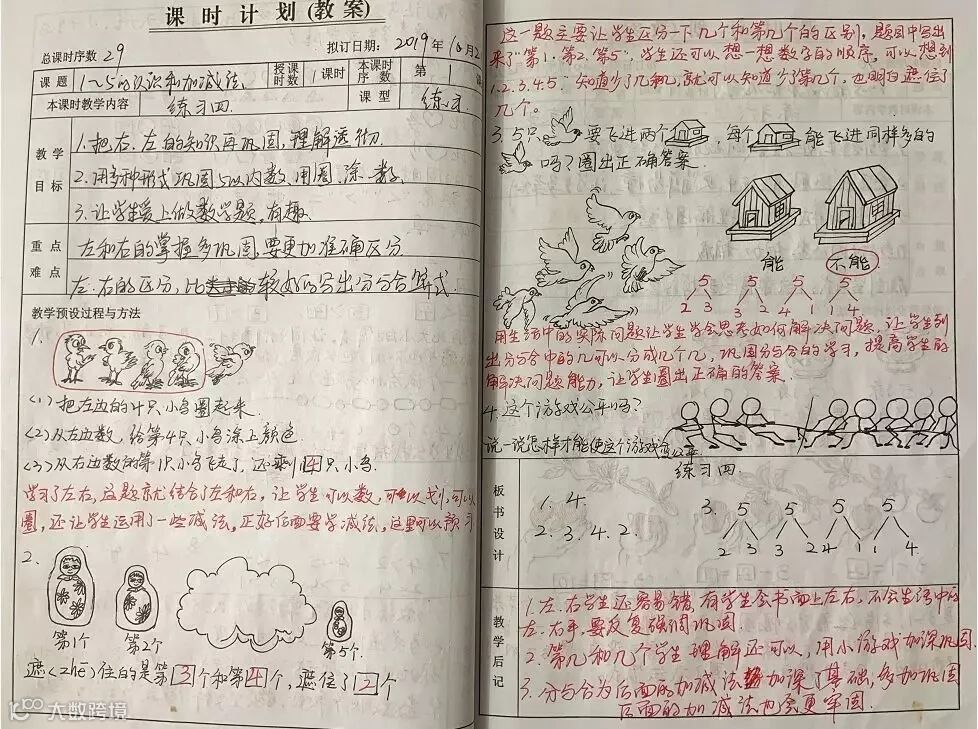 课时计划(教案)
总课时序数 29 拟订日期: 2019年10月2
课题 1~5的认识和加减法 授课时数 1课时 本课时序数 第1
本课时教学内容 练习四 课型 练习
教学目标
1.把右、左的知识再巩固,理解透彻.
2.用多种形式巩固5以内数,用圈、涂、数.
3.让学生爱上做数学题,有趣.
重点 左和右的掌握多巩固,要更加准确区分
难点 左、右的区分,比较好的写出分与合算式.
教学预设过程与方法
1.
(1)把左边的4只小鸟圈起来.
(2)从左边数,给第4只小鸟涂上颜色.
(3)从右边数的第1只小鸟飞走了,还剩4只小鸟.
学习了左右,这题就结合了左和右,让学生可以数,可以划,可以
圈,还让学生运用了一些减法,正好后面要学减法,这里可以预习
2.
第1个 第2个 第5个.
遮(zhē)住的是第3个和第4个,遮住了2个
这一题主要让学生区分一下几个和第几个的区别,题目中写出
来了“第1、第2、第5”,学生还可以想一想数字的顺序,可以想到
1.2.3.4.5.知道少了几和几,就可以知道少了第几个,也明白遮住了
几个.
3.5只 要飞进两个 ,每个 能飞进同样多的
吗?圈出正确答案.
能 不能
5 5 5 5
2 3 3 2 4 1 1 4
用生活中的实际问题让学生学会思考如何解决问题,让学生列
出分与合中的几可以分成几个几,巩固分与合的学习,提高学生的
解决问题能力,让学生圈出正确的答案.
4.这个游戏公平吗?
说一说怎样才能使这个游戏公平.
板书设计
练习四
1. 4.
2. 3. 4. 2.
3. 5 5 5 5
2 3 3 2 4 1 1 4
教学后记
1.左、右学生还容易错,有学生会书面上左右,不会生活中的
左、右手,要反复强调巩固.
2.第几和几个学生理解还可以,用小游戏加深巩固.
3.分与合为后面的加减法加深了基础,多加巩固
后面的加减法也会更牢固.
大数跨境